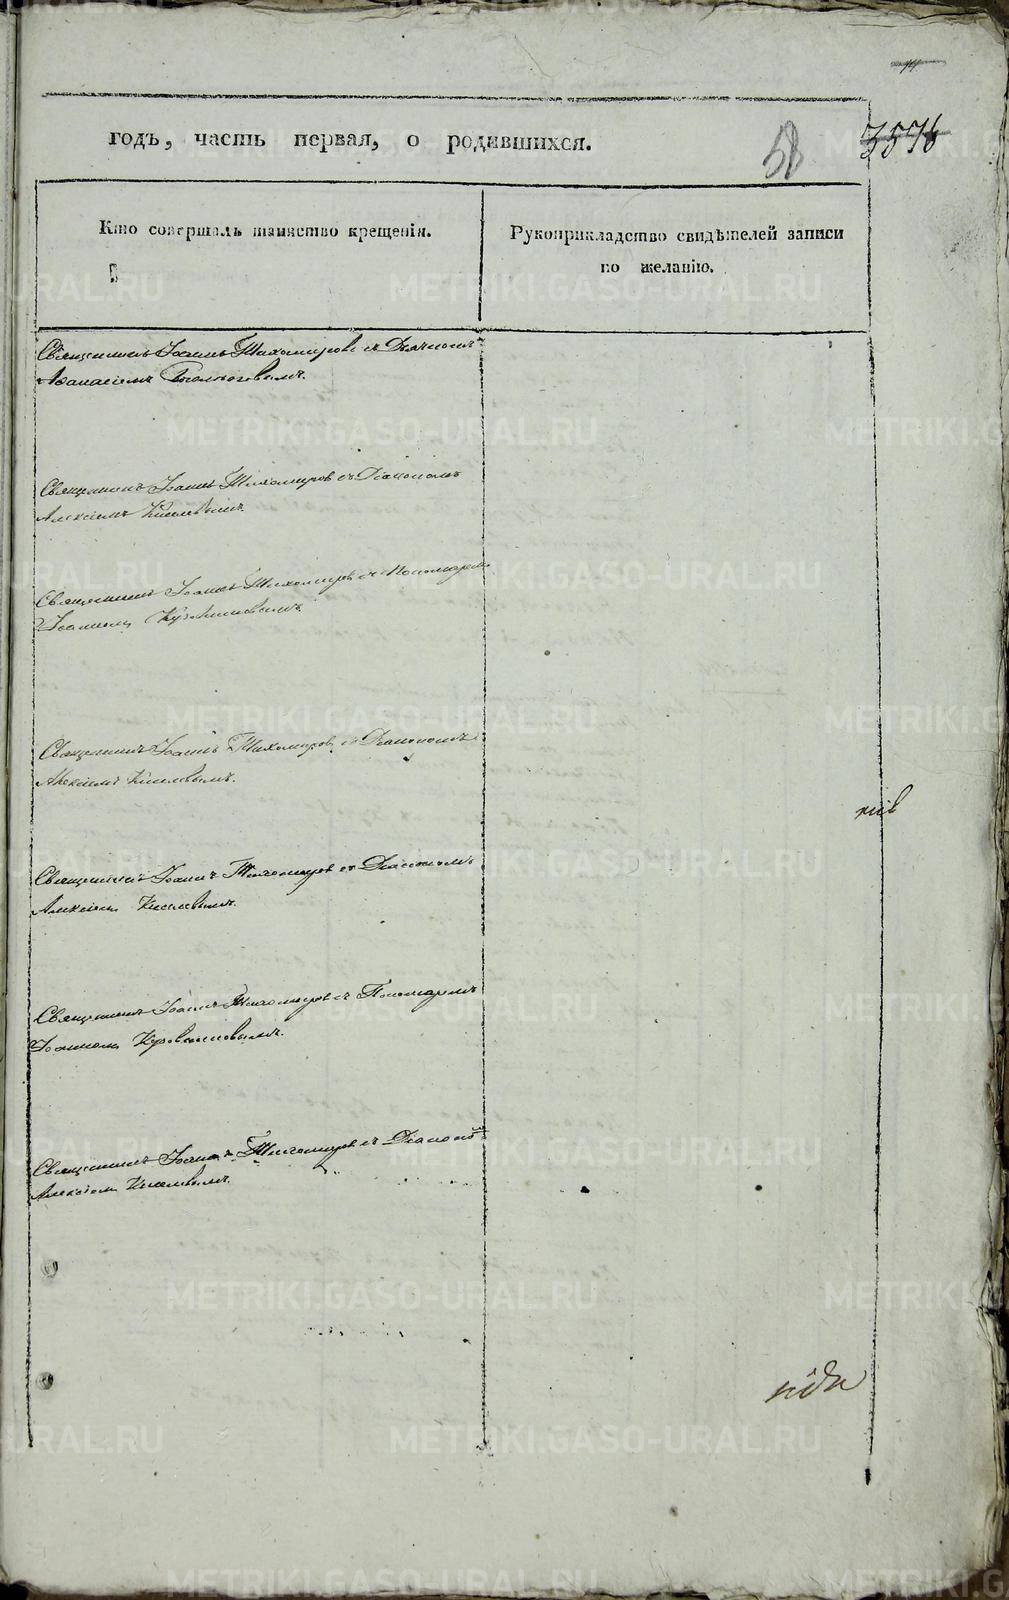 годъ, часть первая, о родившихся.
58
3576
Кто совершалъ таинство крещенія.
Рукоприкладство свидѣтелей записи
по желанію.
Священникъ Іоаннъ Тихомировъ съ Дьячкомъ
Аѳанасіемъ
Священникъ Іоаннъ Тихомиров съ Діакономъ
Алексіемъ Киселевымъ.
Священникъ Іоаннъ Тихомиров съ Пономарем
Іоанномъ
Священникъ Іоаннъ Тихомиров съ Діакономъ
Алексіемъ Киселевымъ.
Священникъ Іоаннъ Тихомиров съ Діакономъ
Алексіемъ Киселевымъ.
Священникъ Іоаннъ Тихомиров съ Пономаремъ
Іоанномъ
Священникъ Іоаннъ Тихомиров съ Діакономъ
Алексіемъ Киселевымъ.
METRIKI.GASO-URAL.RU